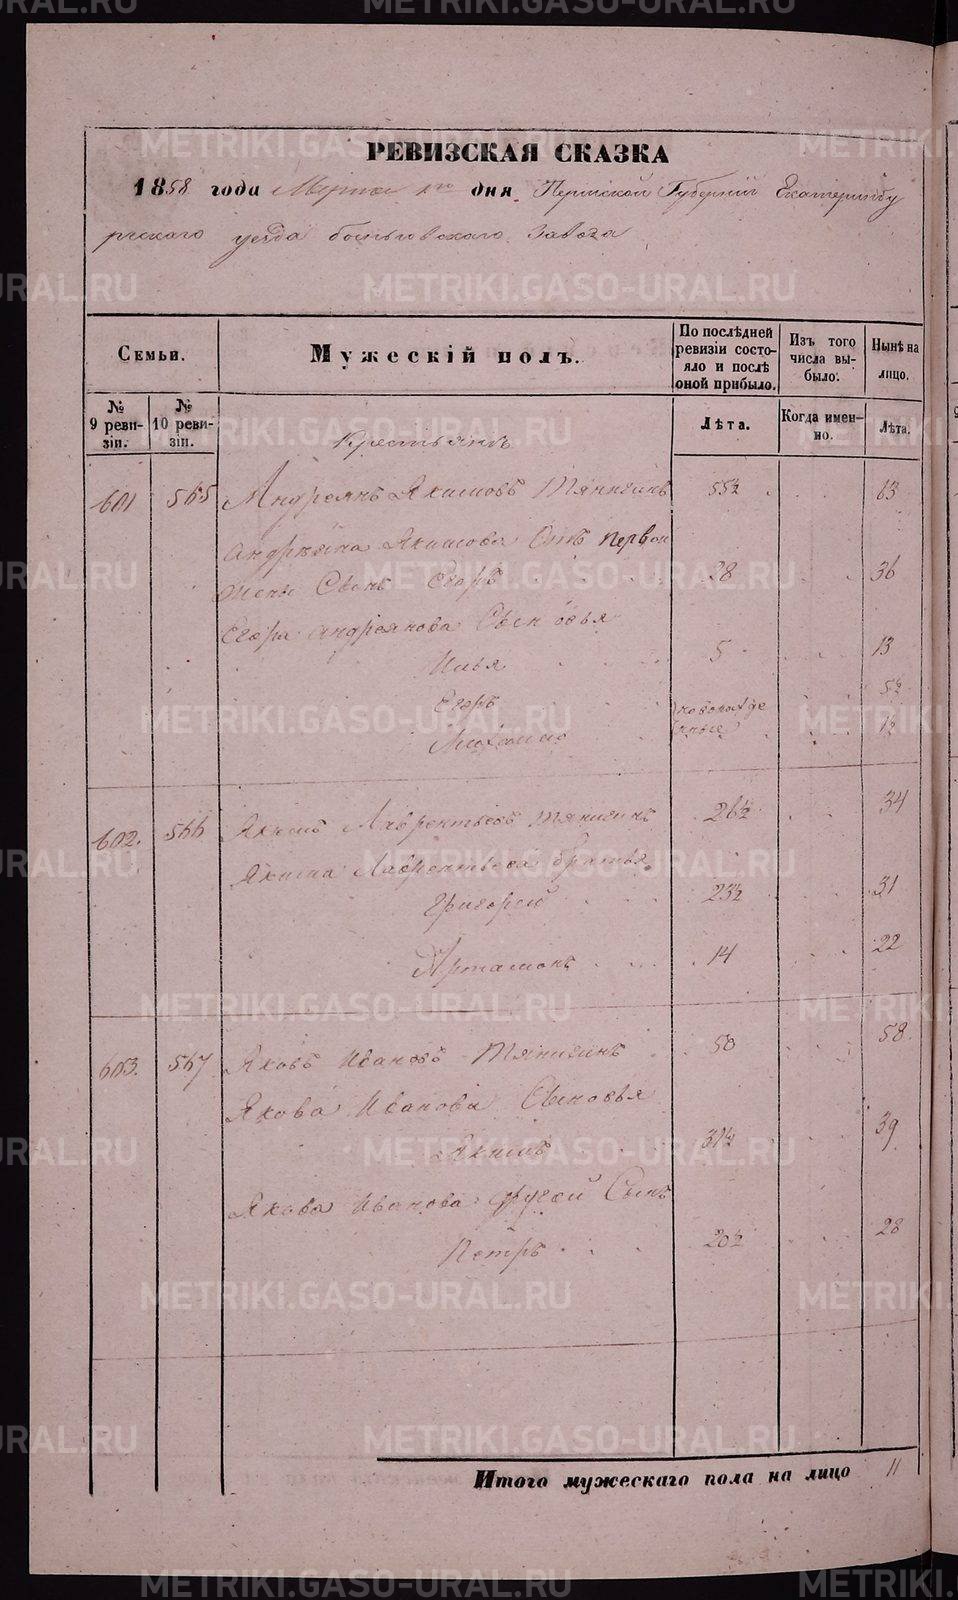 РЕВИЗСКАЯ СКАЗКА
1858 года Марта дня Пермской Губернии Екатеринбу
ргскаго уезда Завода
Семьи.
Мужескій полъ.
По послѣдней ревизіи состояло и послѣ оной прибыло.
Изъ того числа выбыло.
Нынѣ на лицо.
№ 9 ревизіи.
№ 10 ревизіи.
Лѣта.
Когда именно.
Лѣта.
Крестьянъ
601 565 Андреянъ Якимовъ Тянигинъ 55½ 63
Андрѣяна Якимова Отъ первой
жены Сынъ Егоръ 28 36
Егора Андреянова Сыновья
Илья 5 13
Егоръ 5½
Михаило
602. 566 Якимъ Лаврентьевъ Тянигинъ 26½ 34
Якима Лаврентьева братья
Григорей 23½ 31
Артамонъ 14 22
603. 567 Яковъ Ивановъ Тянигинъ 50 58.
Якова Иванова Сыновья
Якимъ 31½ 39
Якова Иванова другой Сынъ
Петръ 20½ 28
Итого мужескаго пола на лицо 11
METRIKI.GASO-URAL.RU